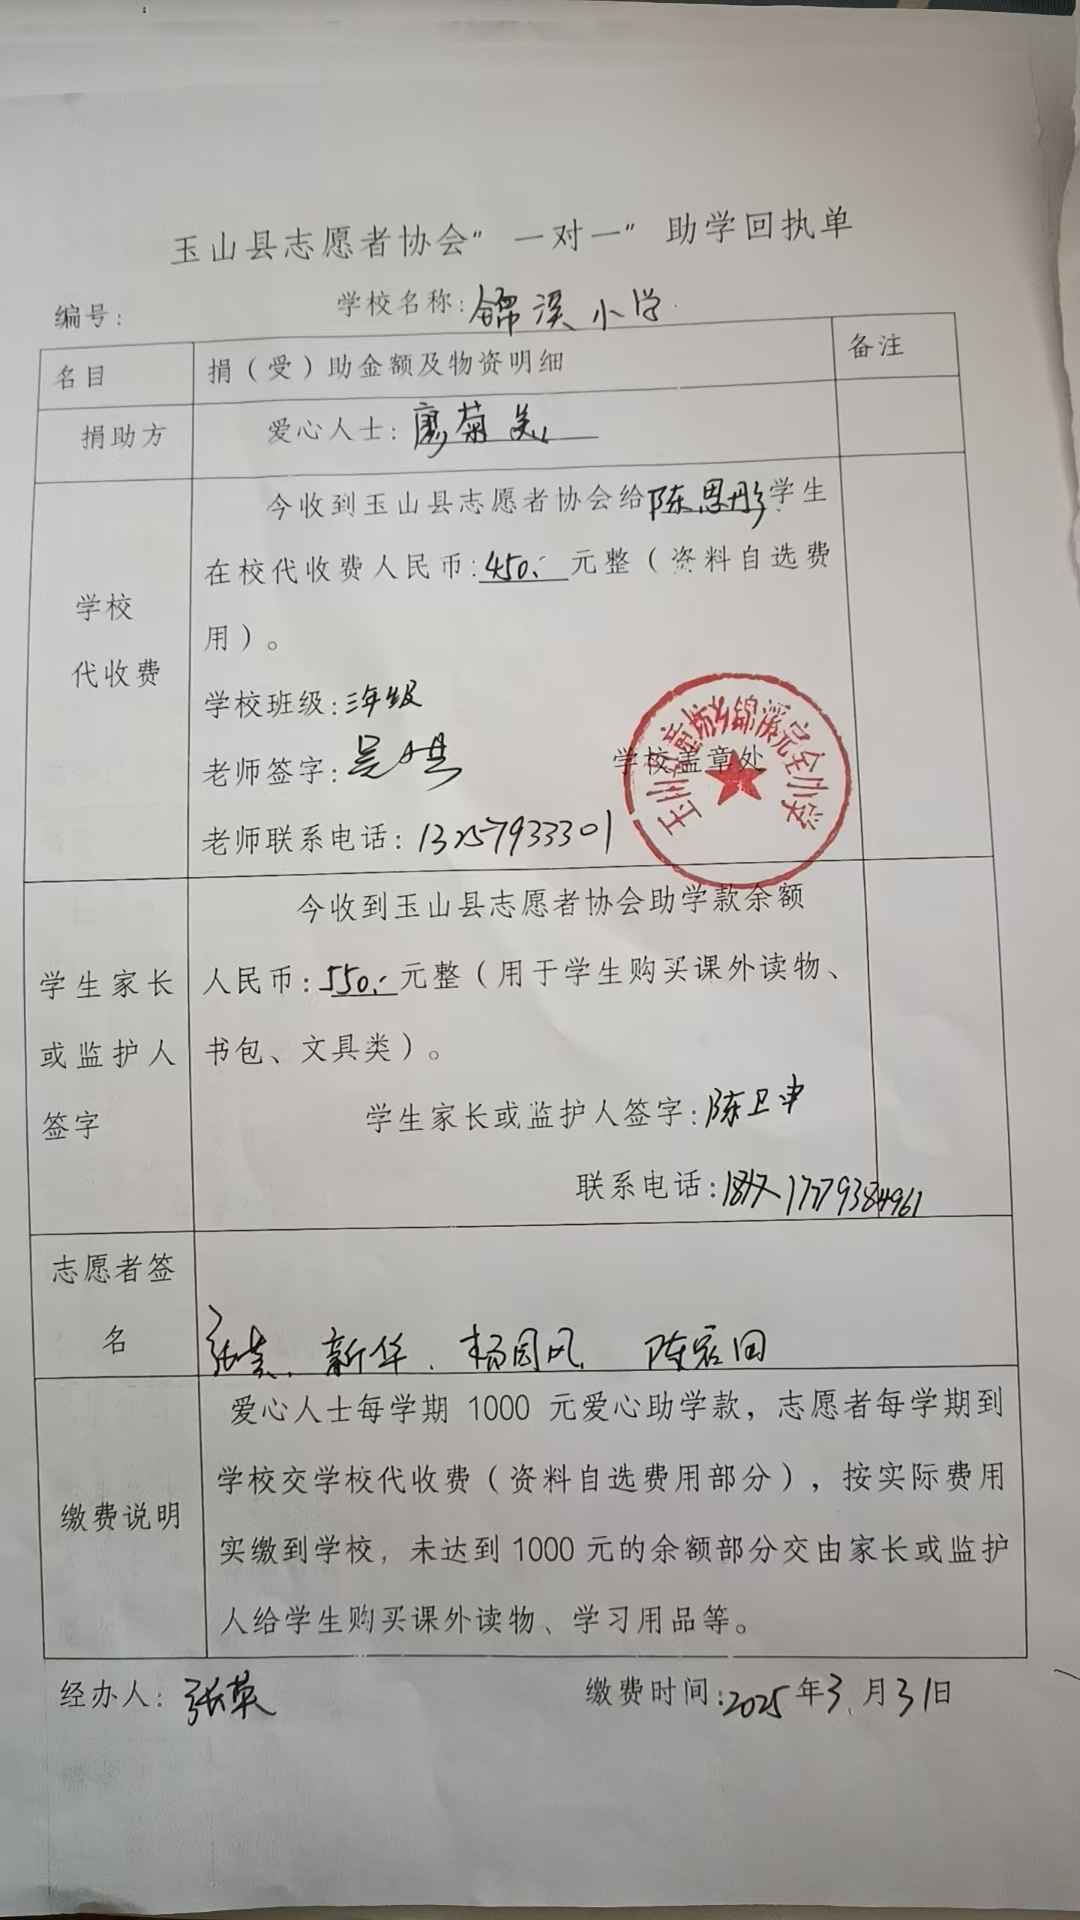 玉山县志愿者协会”一对一”助学回执单
编号: 学校名称:锦溪小学
名目 捐(受)助金额及物资明细 备注
捐助方 爱心人士:廖菊美
今收到玉山县志愿者协会给陈思彤学生
在校代收费人民币:450.元整(资料自选费
用)。
学校
代收费
学校班级:三年级
老师签字:吴
学校盖章处
玉山县童坊乡锦溪完全小学
老师联系电话:13257933301
今收到玉山县志愿者协会助学款余额
学生家长
或监护人
签字
人民币:550.元整(用于学生购买课外读物、
书包、文具类)。
学生家长或监护人签字:陈卫中
联系电话:17779384961
志愿者签
名
新华、杨国风、陈宏田
缴费说明
爱心人士每学期 1000 元爱心助学款,志愿者每学期到
学校交学校代收费(资料自选费用部分),按实际费用
实缴到学校,未达到 1000 元的余额部分交由家长或监护
人给学生购买课外读物、学习用品等。
经办人:张英 缴费时间:2025年3月31日